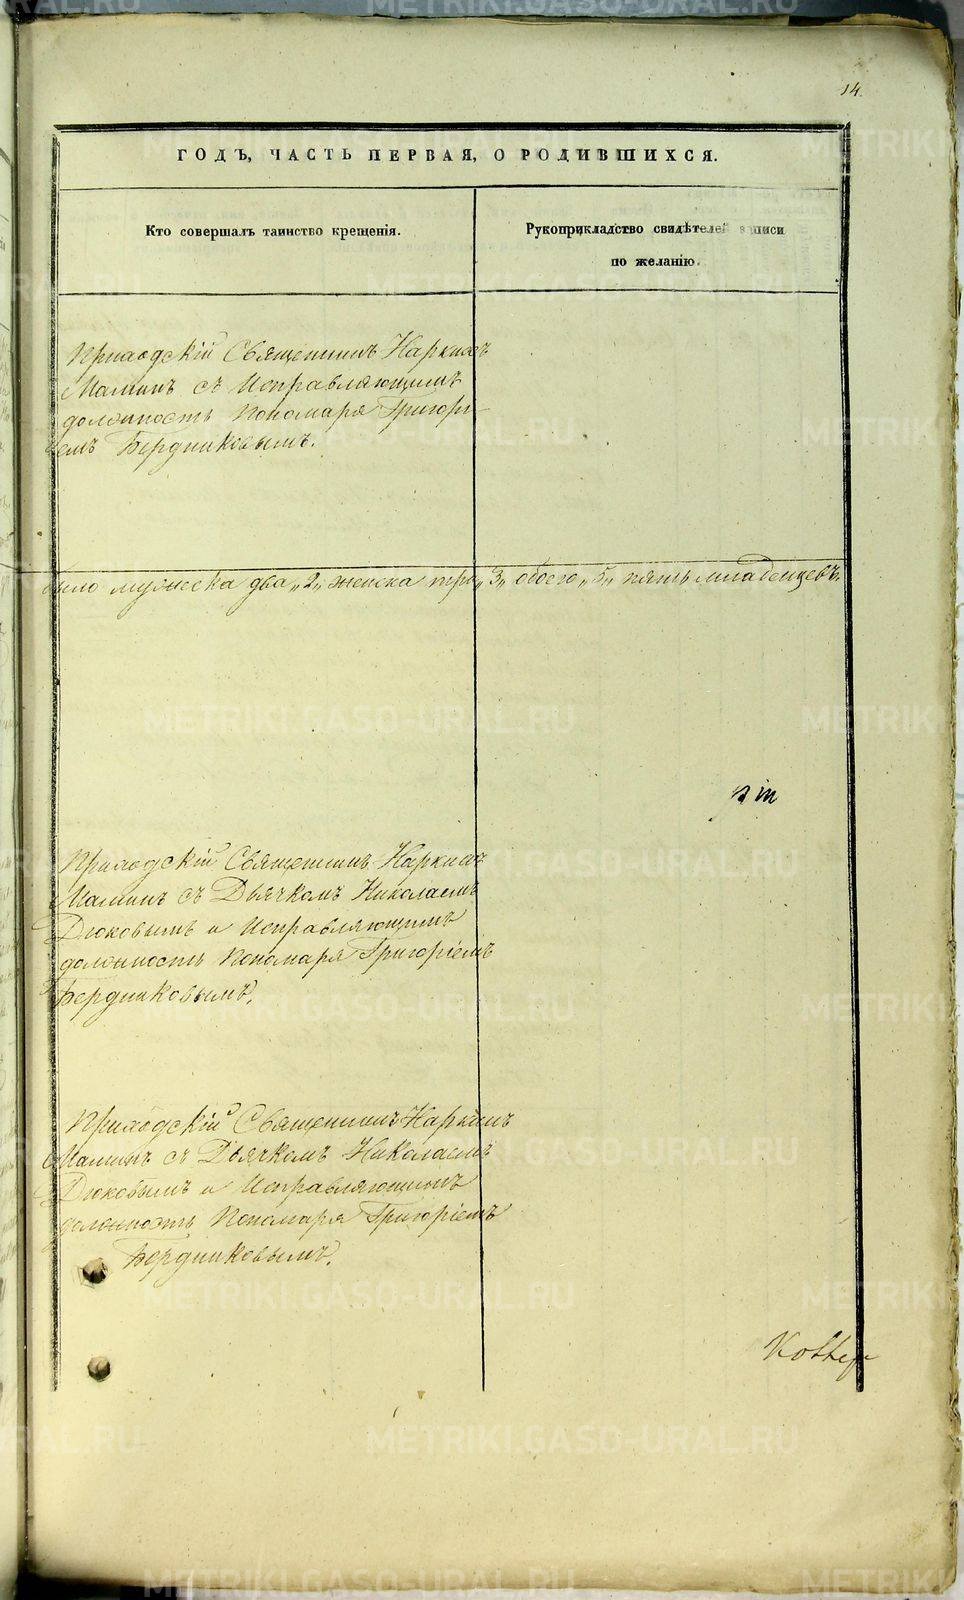 14.
ГОДЪ, ЧАСТЬ ПЕРВАЯ, О РОДИВШИХСЯ.
Кто совершалъ таинство крещенія.
Рукоприкладство свидѣтелей записи
по желанію.
Приходскій Священникъ Наркисъ
Маминъ съ Исправляющимъ
должность Пономаря Григорі-
емъ Бердниковымъ.
было мужеска два „2„ женска три „3„ обоего „5„ пять младенцевъ.
Приходскій Священникъ Наркисъ
Маминъ съ Дьячкомъ Николаемъ
Дюковымъ и Исправляющимъ
должность Пономаря Григоріемъ
Бердниковымъ.
Приходскій Священникъ Наркисъ
Маминъ съ Дьячкомъ Николаемъ
Дюковымъ и Исправляющимъ
должность Пономаря Григоріемъ
Бердниковымъ.
METRIKI.GASO-URAL.RU